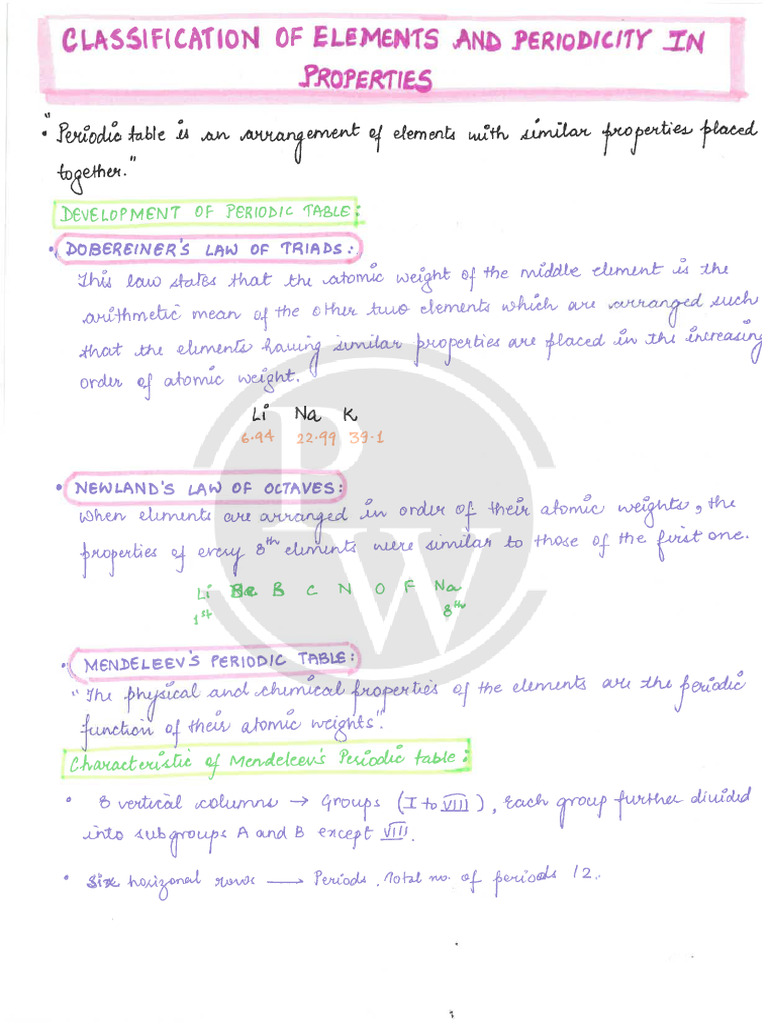 CLASSIFICATION OF ELEMENTS AND PERIODICITY IN
PROPERTIES
"
• Periodic table is an arrangement of elements with similar properties placed
together."
DEVELOPMENT OF PERIODIC TABLE:
• DOBEREINER'S LAW OF TRIADS:
This law states that the atomic weight of the middle element is the
arithmetic mean of the other two elements which are arranged such
that the elements having similar properties are placed in the increasing
order of atomic weight.
Li Na K
6.94 22.99 39.1
• NEWLAND'S LAW OF OCTAVES:
When elements are arranged in order of their atomic weights, the
properties of every 8th elements were similar to those of the first one.
Li Be B C N O F Na
1st 8th
• MENDELEEV'S PERIODIC TABLE:
"The physical and chemical properties of the elements are the periodic
function of their atomic weights".
Characteristic of Mendeleev's Periodic table:
• 8 vertical columns → Groups (I to VIII), Each group further divided
into subgroups A and B except VIII.
• Six horizonal rows → Periods. Total no. of periods 12.
PW